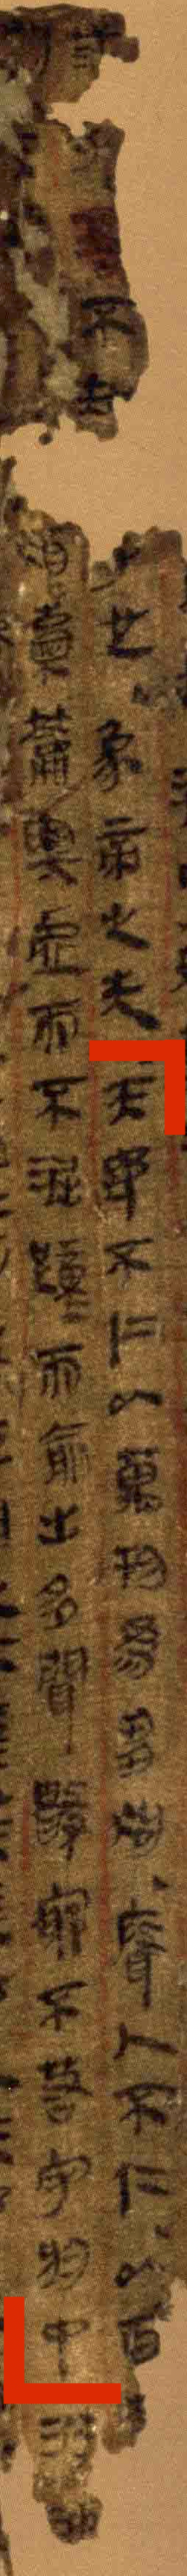 不知也象帝之先天地不仁以萬物為芻狗聲人不仁以百省
猶橐籥輿虛而不淈蹱而俞出多聞數窮不若守於中浴